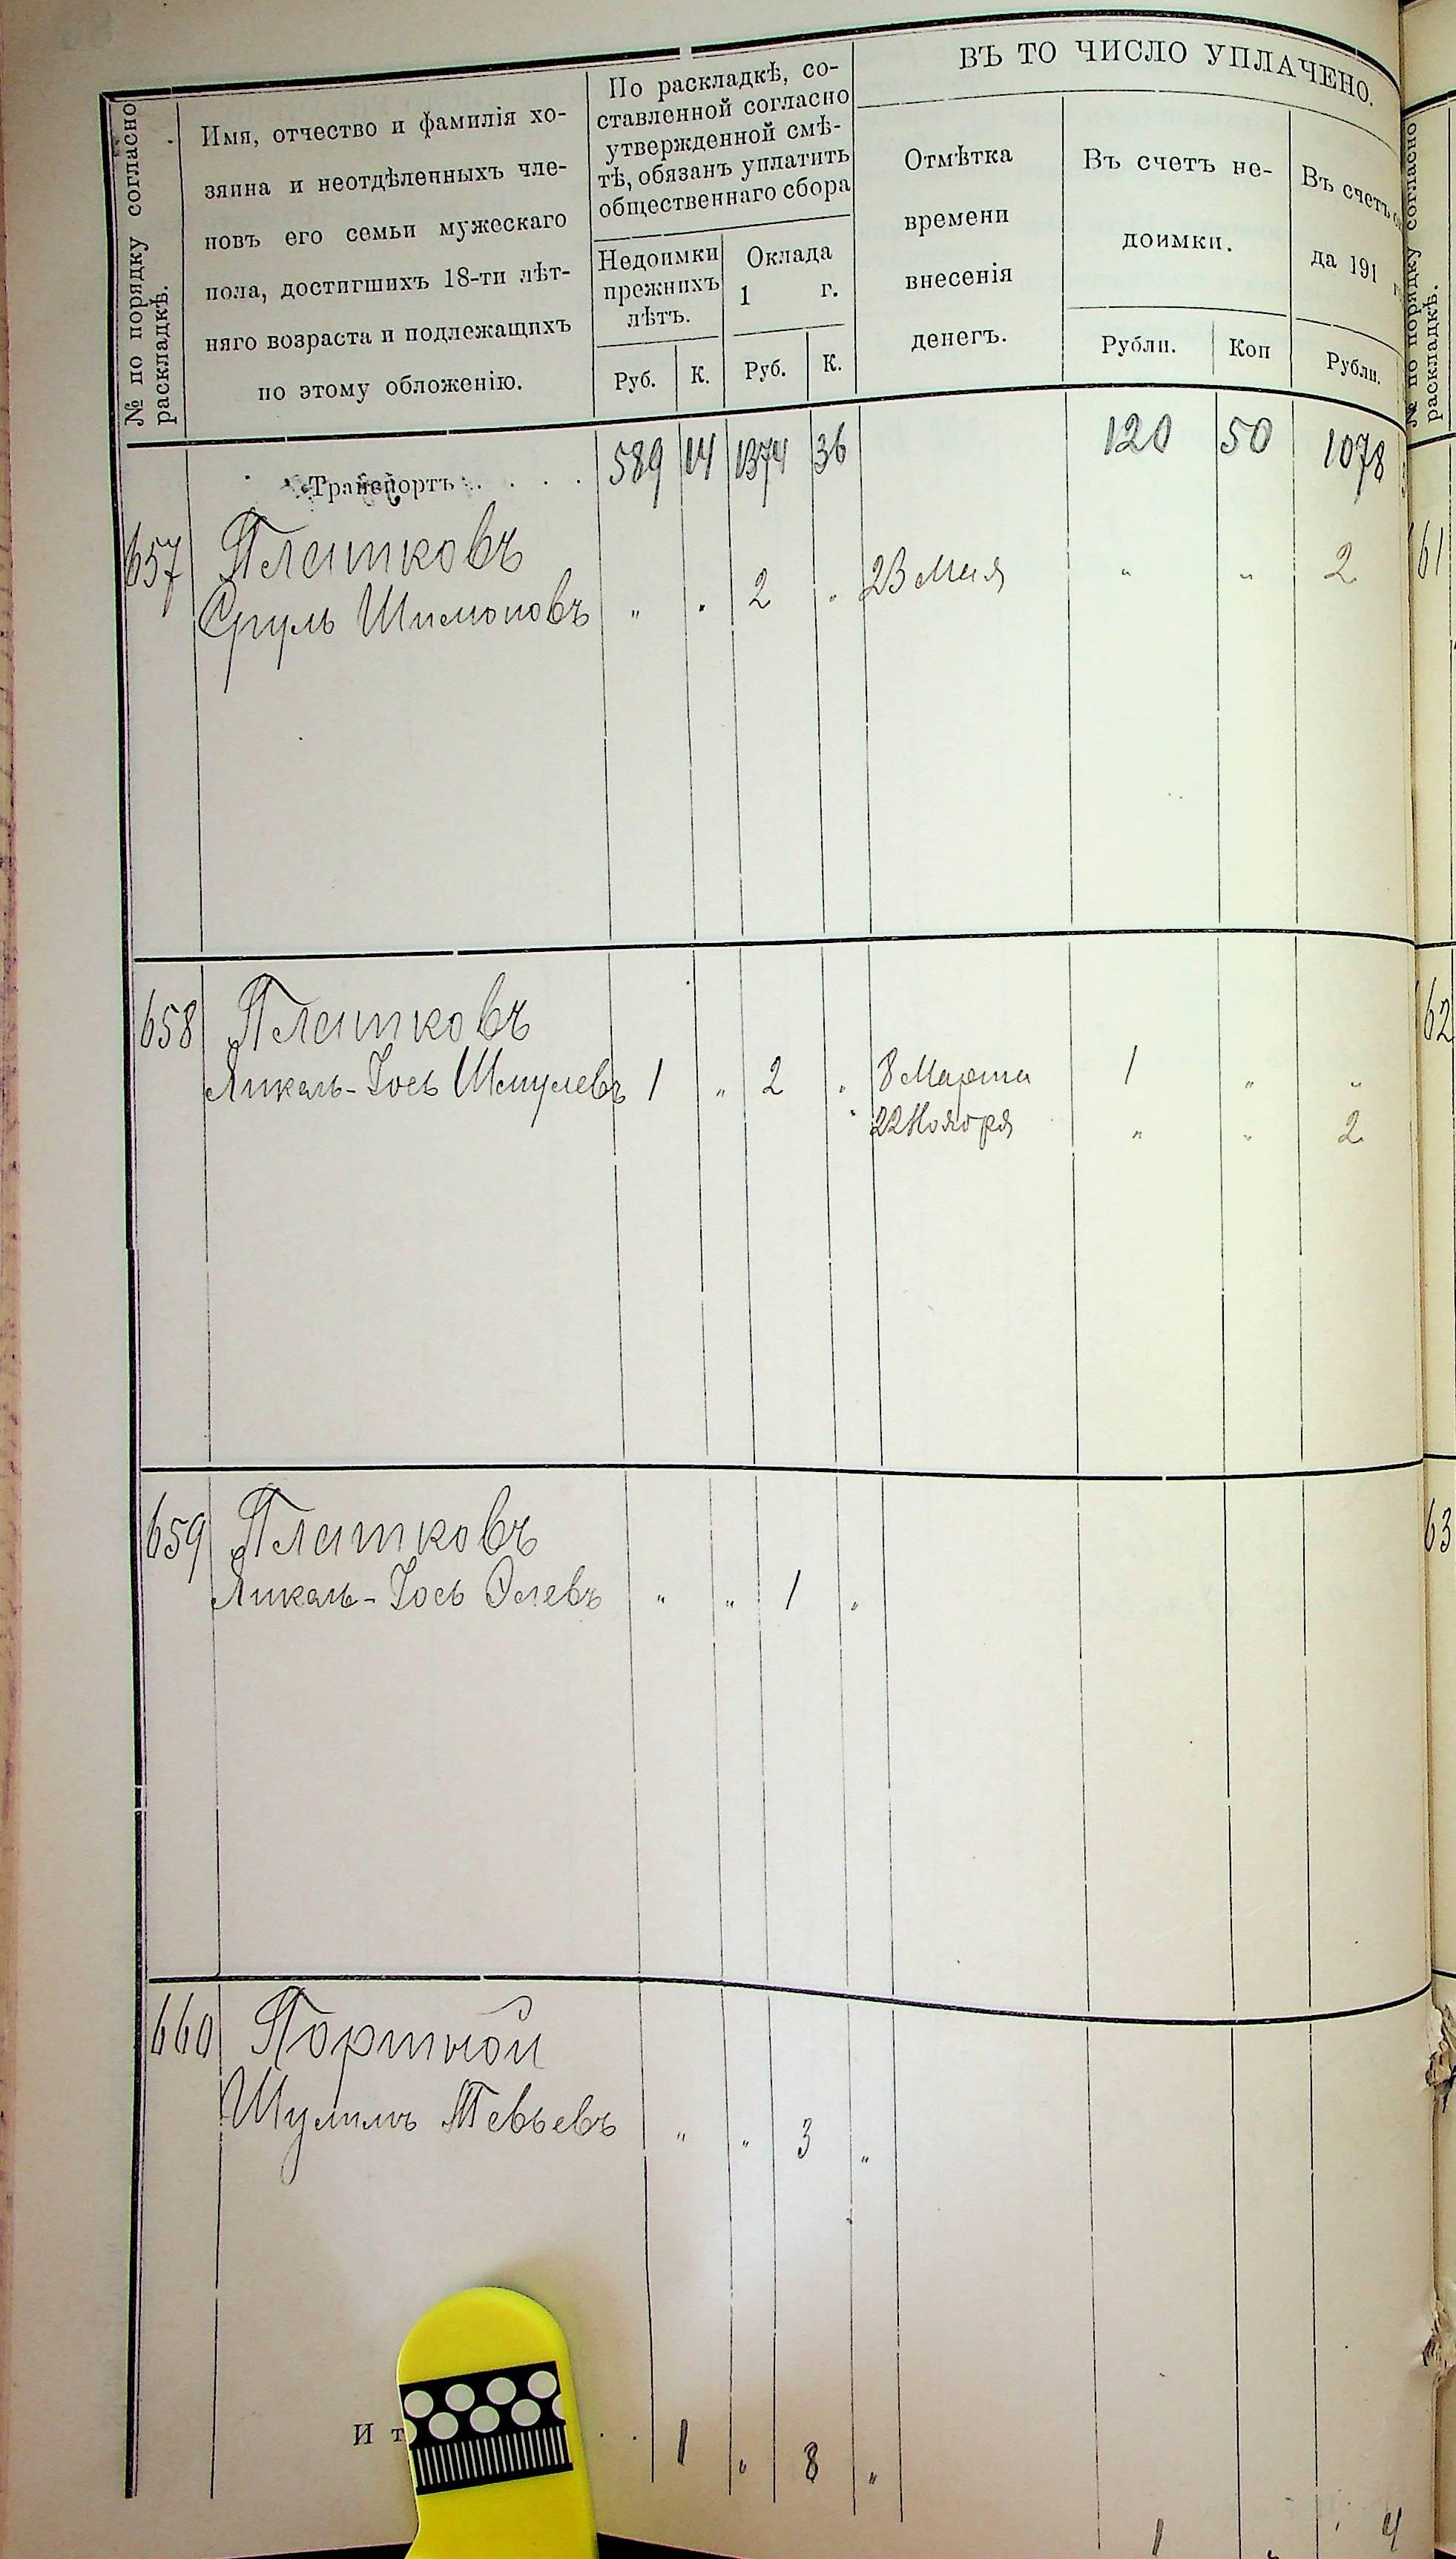 № по порядку согласно
раскладкѣ.
Имя, отчество и фамилія хо-
зяина и неотдѣленныхъ чле-
новъ его семьи мужескаго
пола, достигшихъ 18-ти лѣт-
няго возраста и подлежащихъ
по этому обложенію.
По раскладкѣ, со-
ставленной согласно
утвержденной смѣ-
тѣ, обязанъ уплатить
общественнаго сбора
Недоимки
прежнихъ
лѣтъ.
Оклада
1 г.
Руб. К. Руб. К.
ВЪ ТО ЧИСЛО УПЛАЧЕНО.
Отмѣтка
времени
внесенія
денегъ.
Въ счетъ не-
доимки.
Рубли. Коп
Въ счетъ
да 191
Рубли.
Транспортъ . . . . 589 14 1374 36 120 50 1078
657 Плетковъ
Сруль Шимоновъ „ „ 2 „ 23 Мая „ „ 2
658 Плетковъ
Янкель-Iось Шмулевъ 1 „ 2 „ 8 Марта 1 „ „
22 Ноября „ „ 2
659 Плетковъ
Янкель-Iось Элевъ „ „ 1 „
660 Портной
Шулимъ Тевьевъ „ „ 3 „
И т . . 1 „ 8 „
1 „ 4
№ по порядку согласно
раскладкѣ.
61
62
63